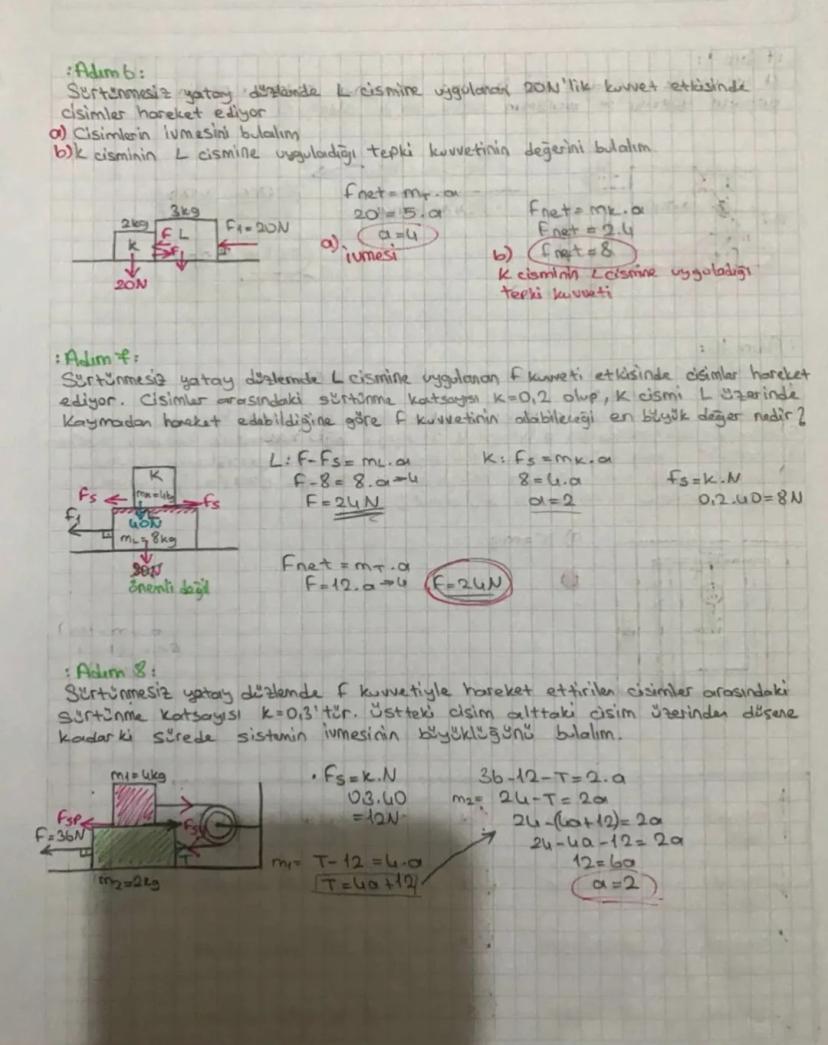 : Adım 6 :
Sürtünmesiz yatay düzlemde L cismine uygulanan 20N'lik kuvvet etkisinde
cisimler hareket ediyor
a) Cisimlerin ivmesini bulalım
b) K cisminin L cismine uyguladığı tepki kuvvetinin değerini bulalım.
2kg 3kg
F L F1=20N
K F
20N
Fnet = mT . a
20 = 5 . a
a) a=4
ivmesi
Fnet = mk . a
Fnet = 2.4
b) fnet = 8
K cisminin L cismine uyguladığı
tepki kuvveti
: Adım 7 :
Sürtünmesiz yatay düzlemde L cismine uygulanan f kuvveti etkisinde cisimler hareket
ediyor. Cisimler arasındaki sürtünme katsayısı k=0,2 olup, K cismi L üzerinde
kaymadan hareket edebildiğine göre f kuvvetinin alabileceği en büyük değer nedir?
K
Fs mk=4kg fs
F1 40N
mL=8kg
önemli değil
L: F-Fs = mL.a
F-8 = 8.a
F = 24N
K: fs = mk.a
8 = 4.a
a = 2
fs = k.N
0,2.40 = 8N
Fnet = mT . a
F = 12.a
F=24N
: Adım 8 :
Sürtünmesiz yatay düzlemde f kuvvetiyle hareket ettirilen cisimler arasındaki
sürtünme katsayısı k=0,3'tür. Üstteki cisim alttaki cisim üzerinden düşene
kadar ki sürede sistemin ivmesinin büyüklüğünü bulalım.
m1=4kg
Fsp
F=36N
T
m2=2kg
. Fs = k.N
03.40
=12N
m1= T-12 = 4.a
T=4a+12
36-12-T = 2.a
m2= 24-T = 2a
24-(4a+12) = 2a
24-4a-12 = 2a
12 = 6a
a=2